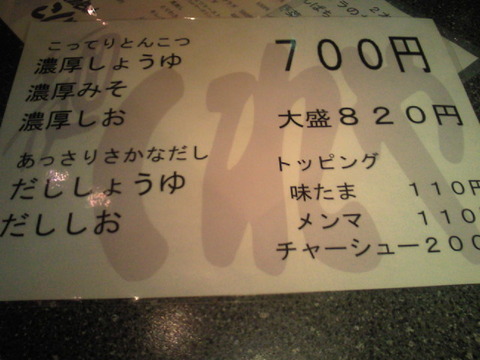 こってりとんこつ
濃厚しょうゆ
濃厚みそ
濃厚しお
700円
大盛820円
あっさりさかなだし
だししょうゆ
だししお
トッピング
味たま 110円
メンマ 110
チャーシュー200